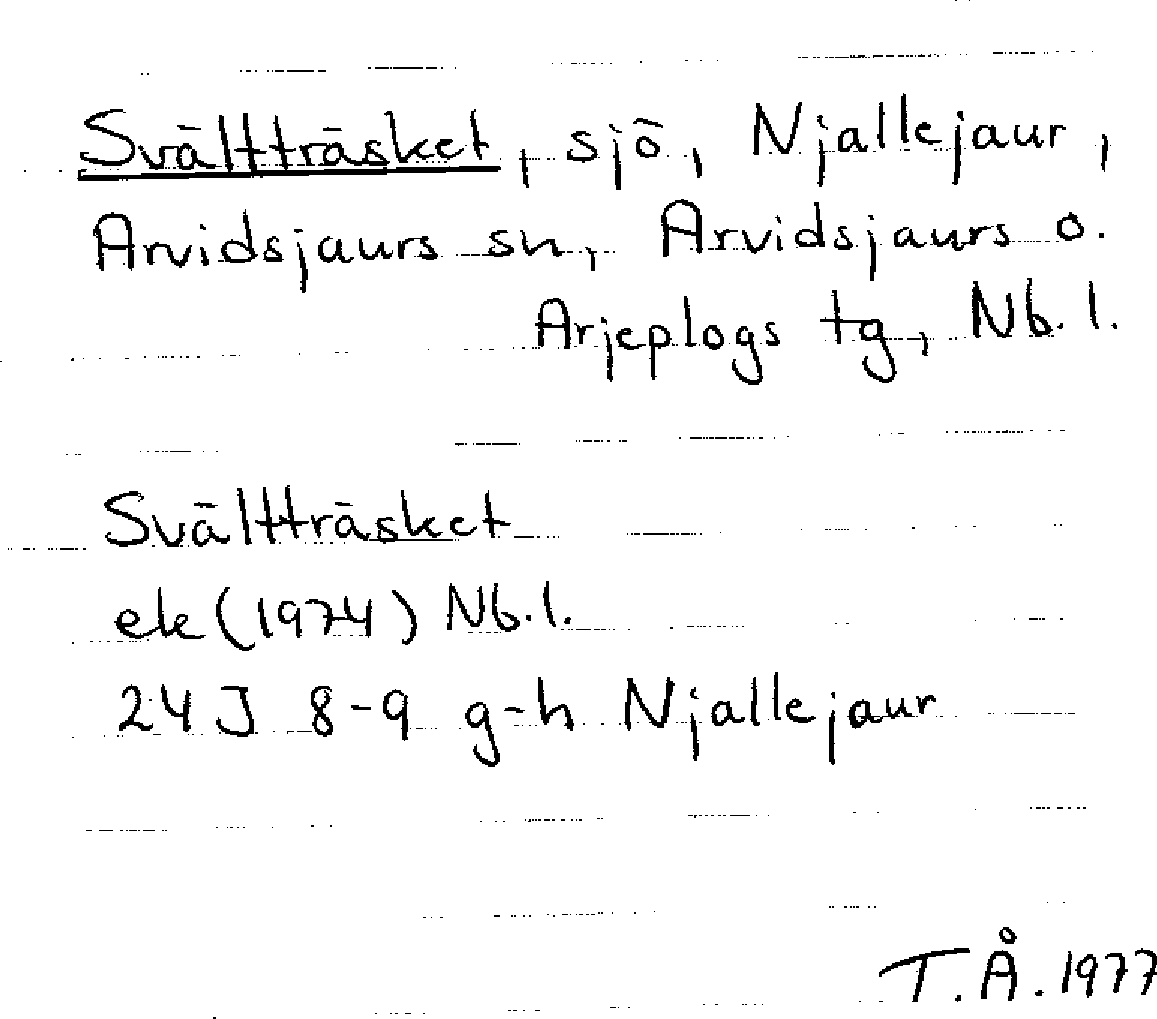 Svältträsket, sjö, Njallejaur,
Arvidsjaurs sn, Arvidsjaurs o.
Arjeplogs tg, Nb. l.
Svältträsket
ek (1974) Nb. l.
24 J 8-9 g-h Njallejaur
T. Å. 1977